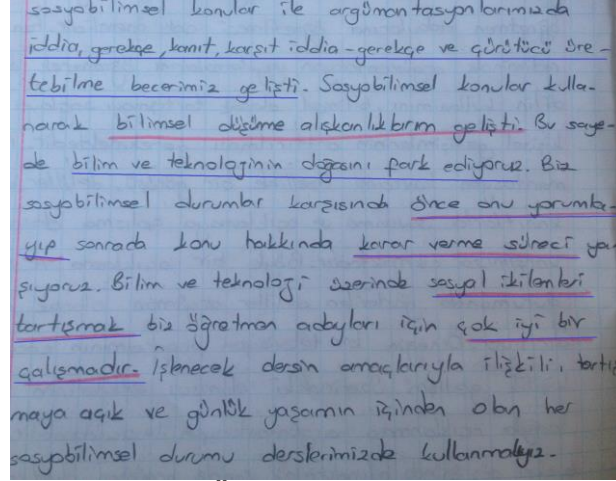 sosyobilimsel konular ile argümantasyonlarımızda
iddia, gerekçe, kanıt, karşıt iddia-gerekçe ve çürütücü üre-
tebilme becerimiz gelişti. Sosyobilimsel konular kulla-
narak bilimsel düşünme alışkanlıklarım gelişti. Bu saye-
de bilim ve teknolojinin doğasını fark ediyoruz. Biz
sosyobilimsel durumlar karşısında önce onu yorumla-
yıp sonrada konu hakkında karar verme süreci ya-
şıyoruz. Bilim ve teknoloji üzerinde sosyal ikilemleri
tartışmak biz öğretmen adayları için çok iyi bir
çalışmadır. İşlenecek dersin amaçlarıyla ilişkili, tartış
maya açık ve günlük yaşamın içinden olan her
sosyobilimsel durumu derslerimizde kullanmalıyız.